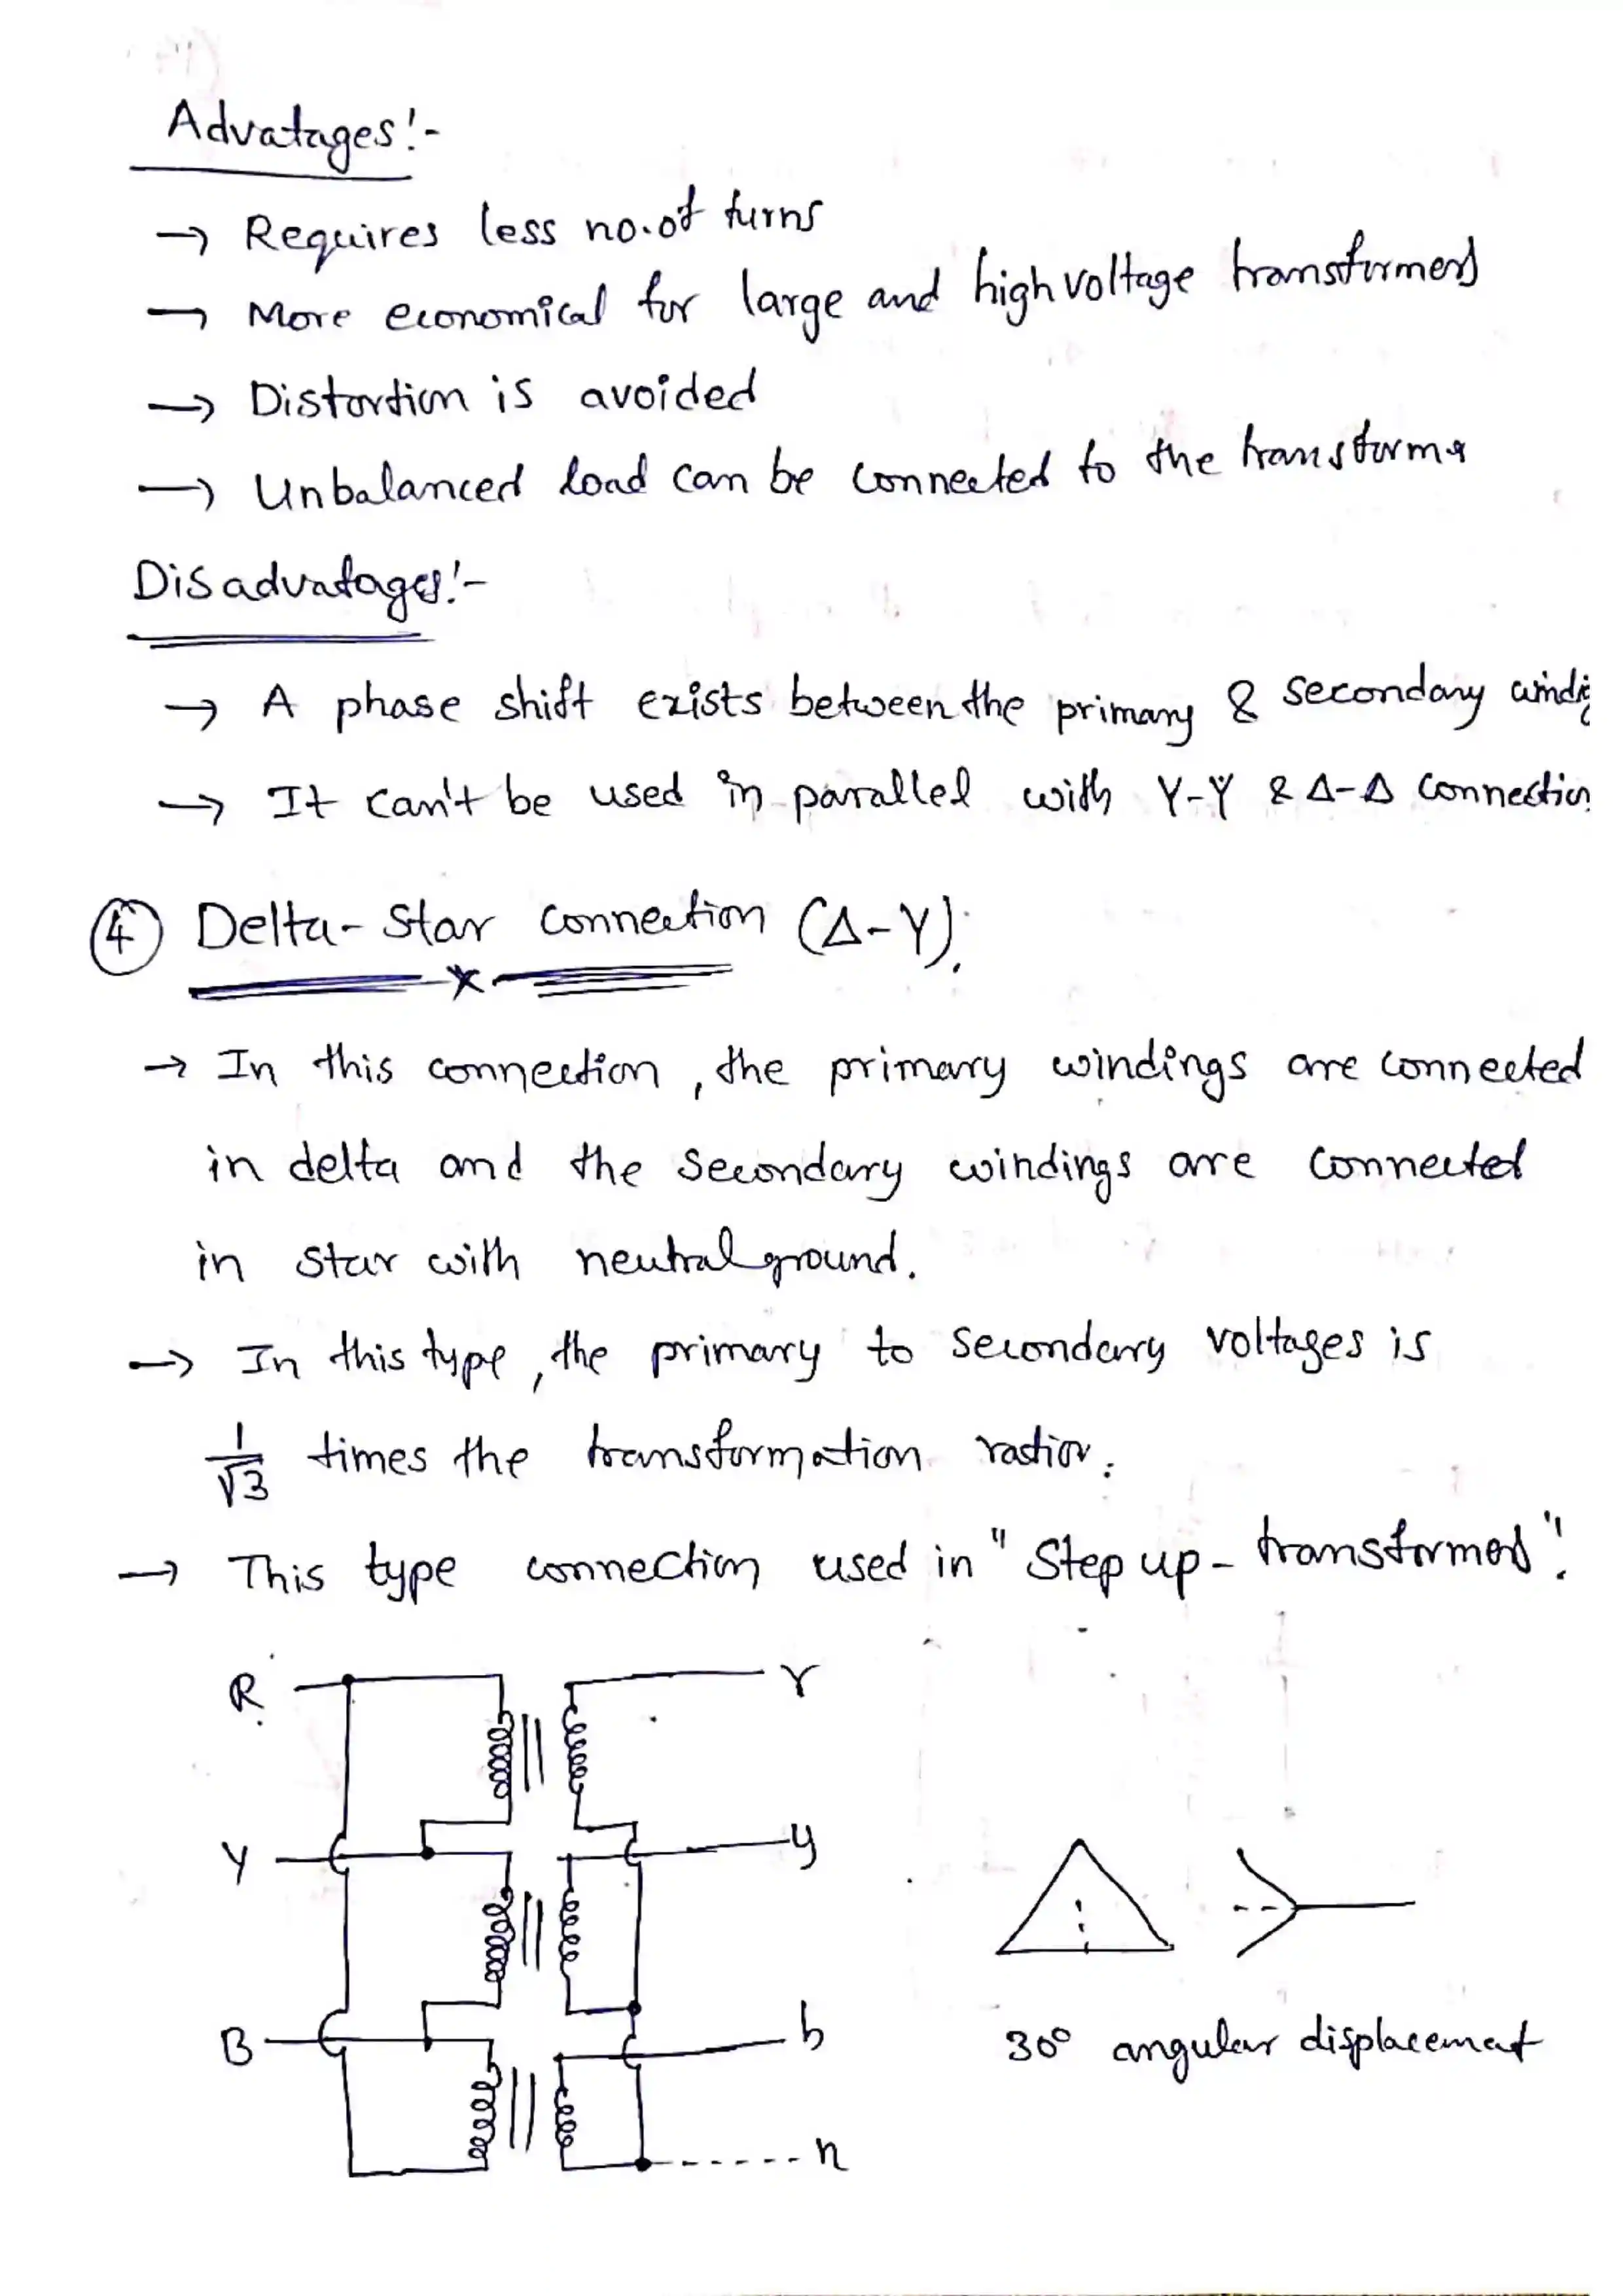 Advatages:-
→ Requires less no. of turns
→ More economical for large and high voltage transformers
→ Distortion is avoided
→ Unbalanced load can be connected to the transformer
Disadvatages:-
→ A phase shift exists between the primary & secondary
→ It can't be used in parallel with Y-Y & Δ-Δ connection
④ Delta-Star connection (Δ-Y).
→ In this connection, the primary windings are connected
in delta and the secondary windings are connected
in star with neutral ground.
→ In this type, the primary to secondary voltages is
1/√3 times the transformation
→ This type connection used in "Step up - transformers".
R r
Y y
B b
30° angular displacement
n